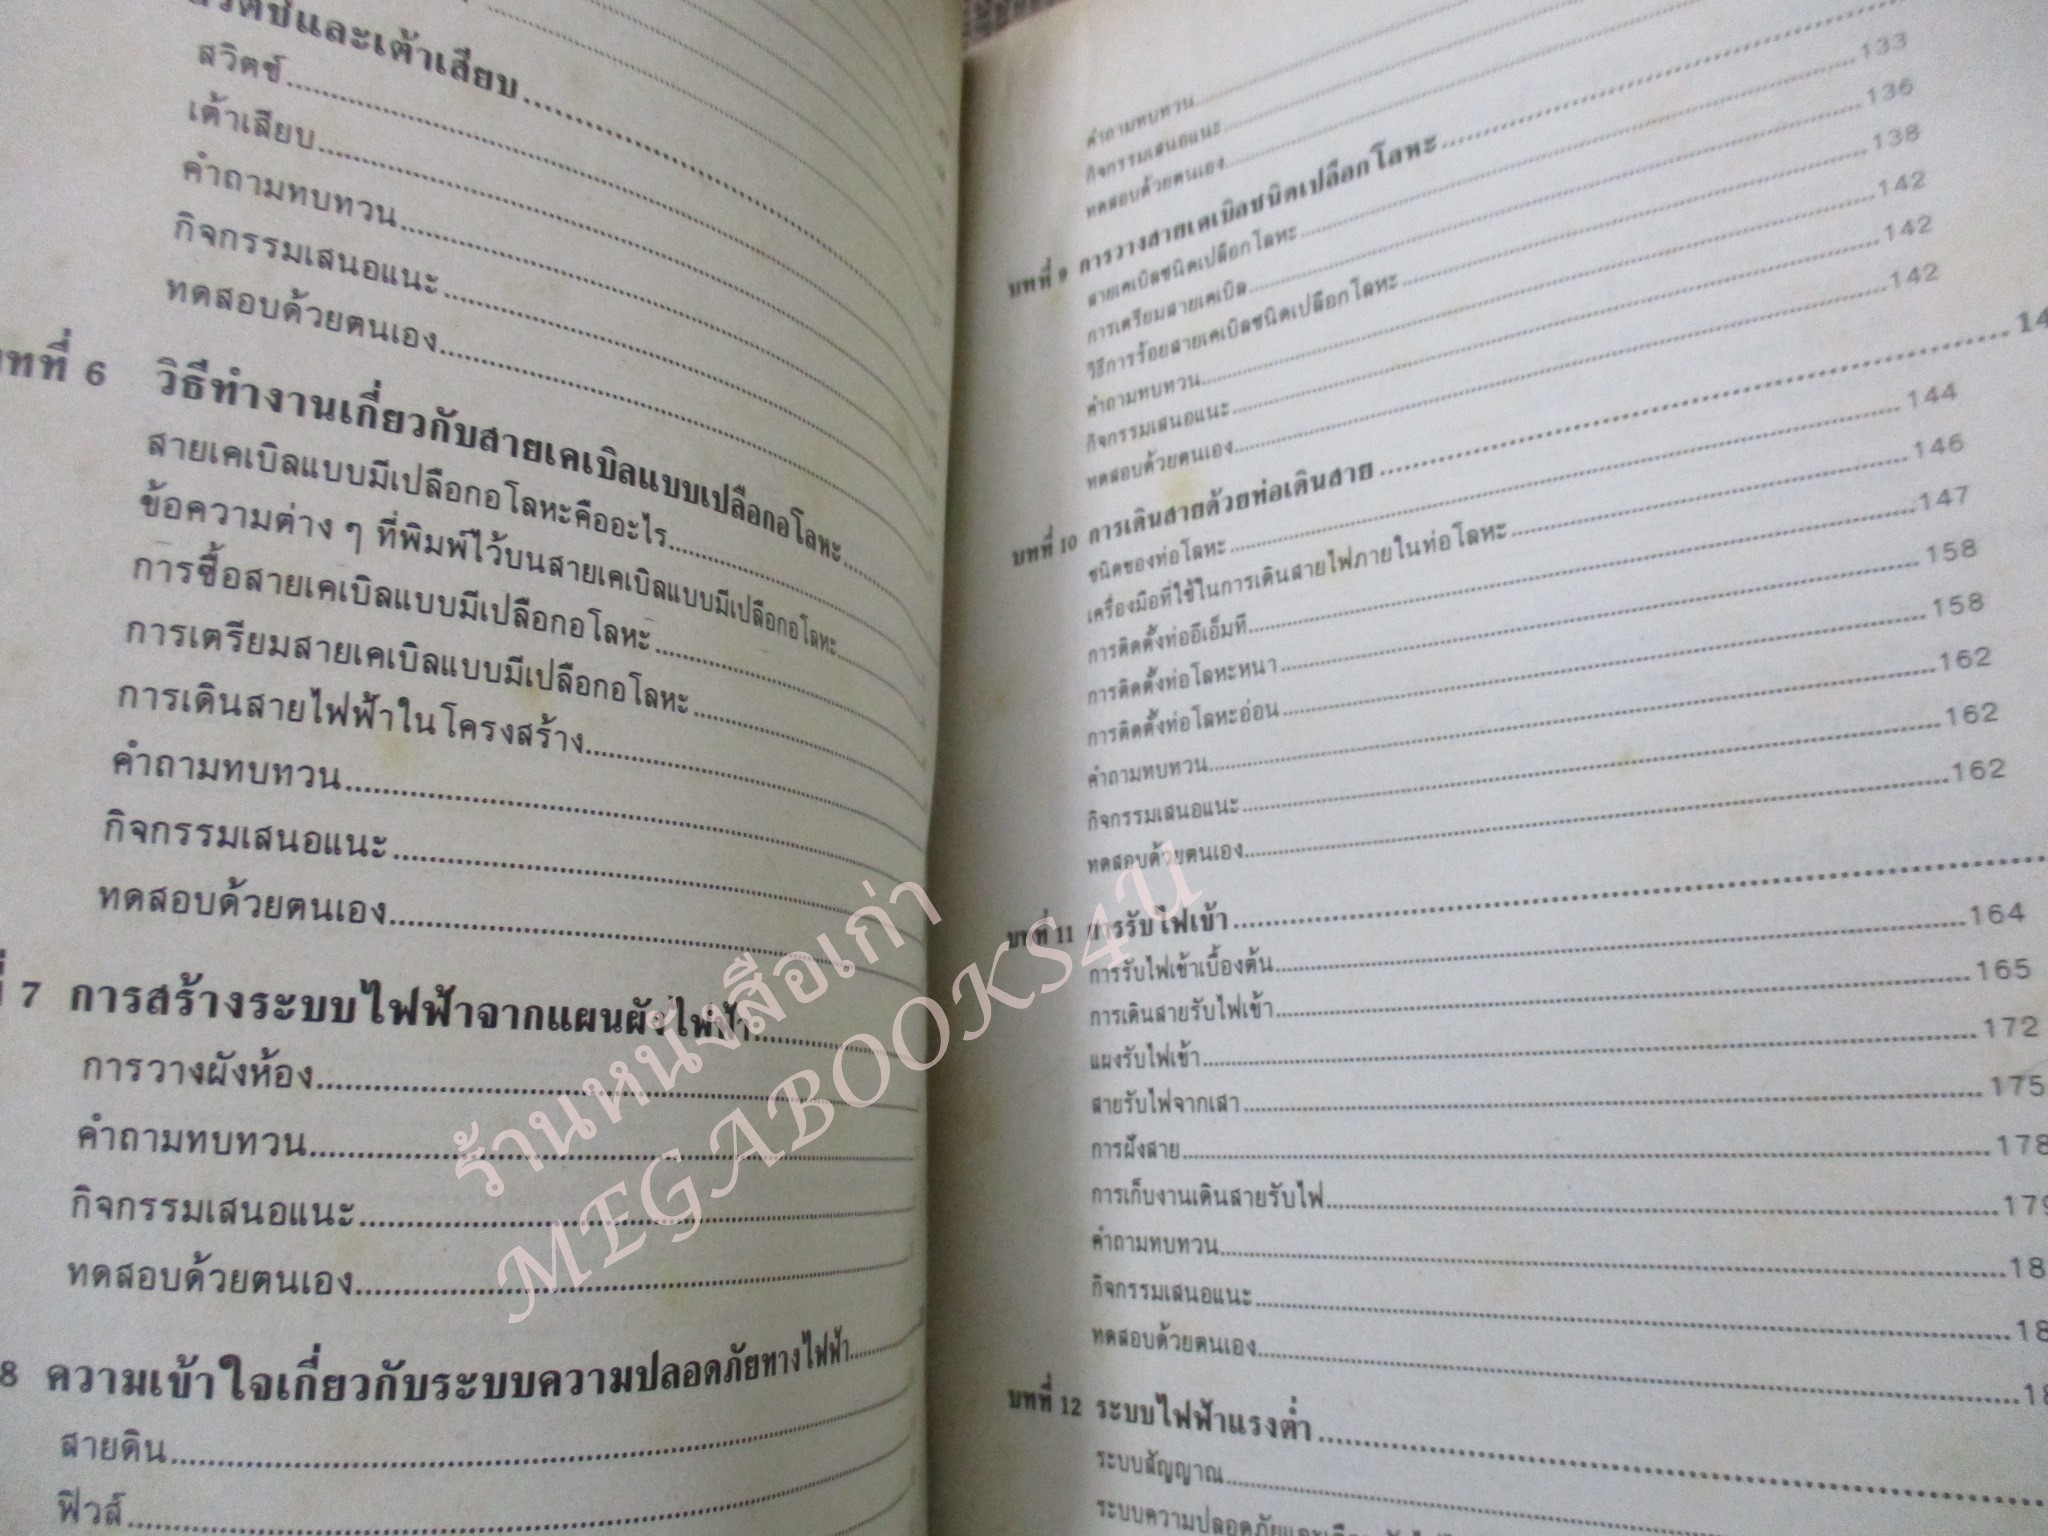 และเต้าเสียบ
สวิตซ์
เต้าเสียบ
คำถามทบทวน
กิจกรรมเสนอแนะ
ทดสอบด้วยตนเอง
6 วิธีทำงานเกี่ยวกับสายเคเบิลแบบเปลือกอโลหะ
สายเคเบิลแบบมีเปลือกอโลหะคืออะไร
ข้อความต่าง ๆ ที่พิมพ์ไว้บนสายเคเบิลแบบมีเปลือกอโลหะ
การซื้อสายเคเบิลแบบมีเปลือกอโลหะ
การเตรียมสายเคเบิลแบบมีเปลือกอโลหะ
การเดินสายไฟฟ้าในโครงสร้าง
คำถามทบทวน
กิจกรรมเสนอแนะ
ทดสอบด้วยตนเอง
7 การสร้างระบบไฟฟ้าจากแผนผังไฟฟ้า
การวางผังห้อง
คำถามทบทวน
กิจกรรมเสนอแนะ
ทดสอบด้วยตนเอง
8 ความเข้าใจเกี่ยวกับระบบความปลอดภัยทางไฟฟ้า
สายดิน
ฟิวส์
คำถามทบทวน
กิจกรรมเสนอแนะ
ทดสอบด้วยตนเอง
บทที่ 9 การวางสายเคเบิลชนิดเปลือกโลหะ
สายเคเบิลชนิดเปลือกโลหะ 133
การเตรียมสายเคเบิล 136
วิธีการร้อยสายเคเบิลชนิดเปลือกโลหะ 138
คำถามทบทวน 142
กิจกรรมเสนอแนะ 142
ทดสอบด้วยตนเอง 142
บทที่ 10 การเดินสายด้วยท่อเดินสาย
ชนิดของท่อโลหะ 144
เครื่องมือที่ใช้ในการเดินสายไฟภายในท่อโลหะ 146
การติดตั้งท่ออีเอ็มที 147
การติดตั้งท่อโลหะหนา 158
การติดตั้งท่อโลหะอ่อน 158
คำถามทบทวน 162
กิจกรรมเสนอแนะ 162
ทดสอบด้วยตนเอง 162
บทที่ 11 การรับไฟเข้า
การรับไฟเข้าเบื้องต้น 164
การเดินสายรับไฟเข้า 165
แผงรับไฟเข้า 172
สายรับไฟจากเสา 175
การฝังสาย 178
การเก็บงานเดินสายรับไฟ 179
คำถามทบทวน
กิจกรรมเสนอแนะ
ทดสอบด้วยตนเอง
บทที่ 12 ระบบไฟฟ้าแรงต่ำ
ระบบสัญญาณ
ร้านหนังสือเก่า
MEGABOOKS4U